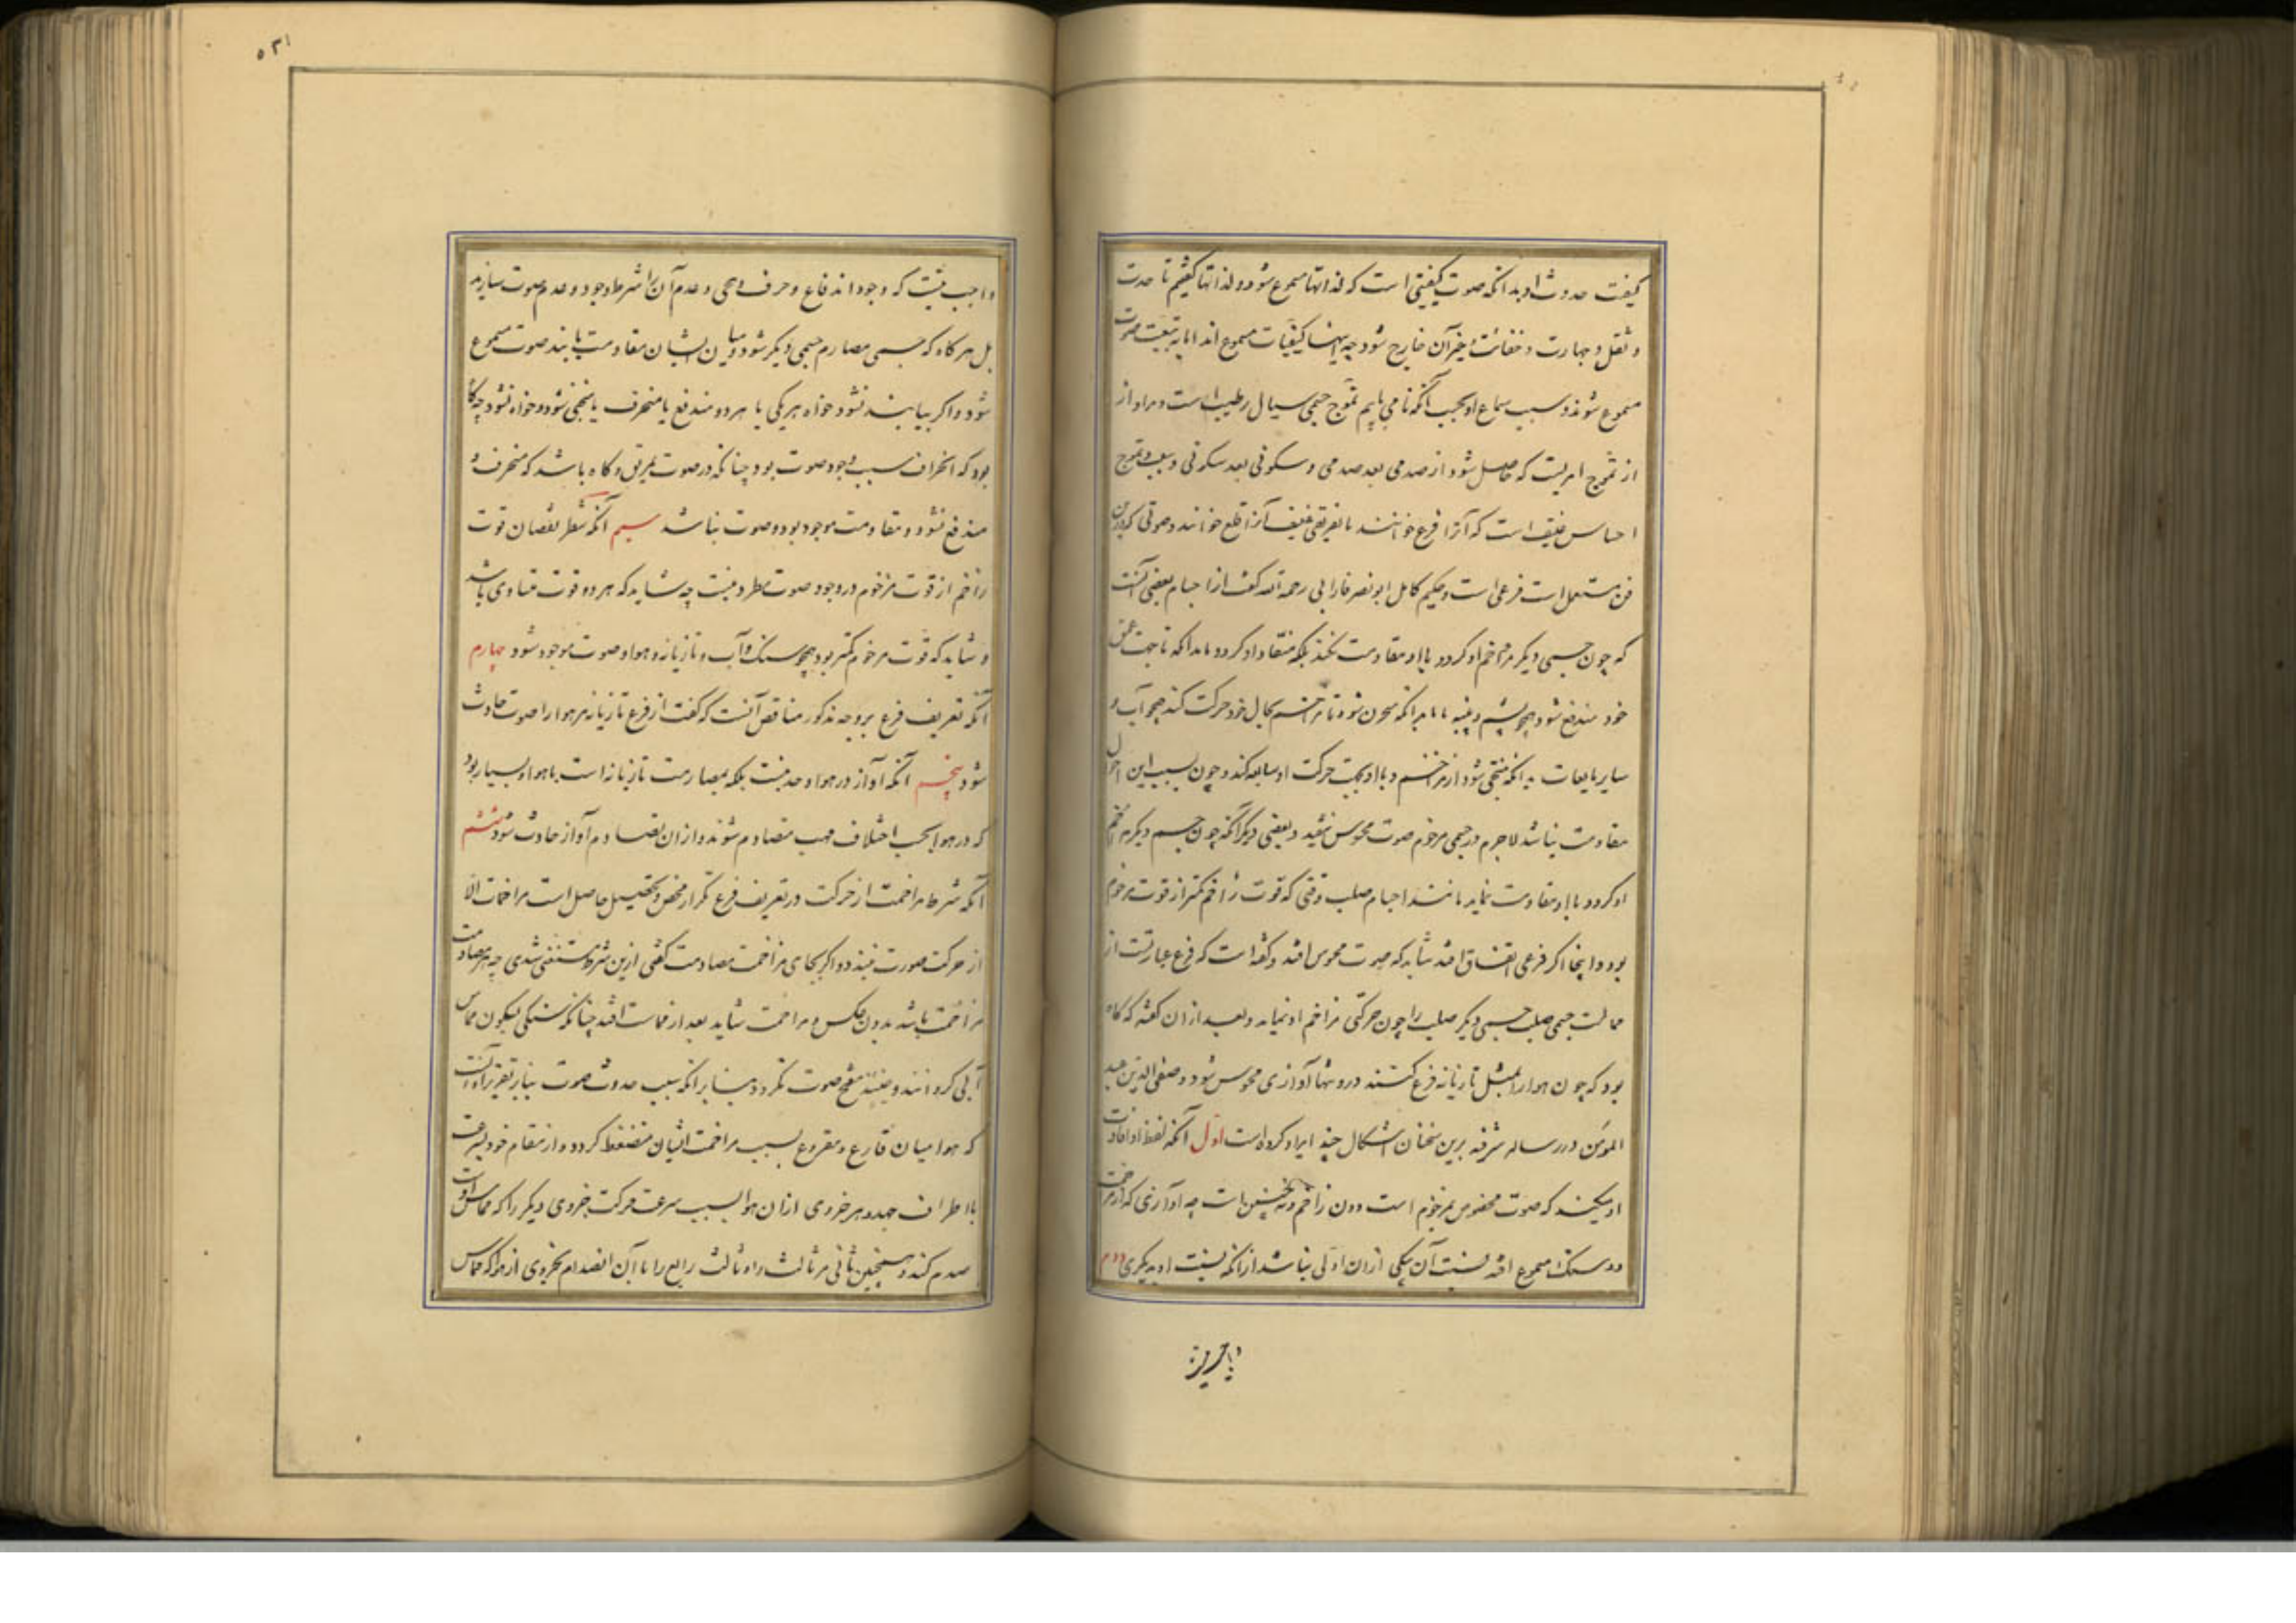 کیفیت حدوث او بدانکه صوت کیفیتی است که لذاتها مسموع شود و لذاتها گفتیم تا حدت
و ثقل و جهارت و خفائت و غیر آن خارج شود چه اینها کیفیات مسموع اند اما به تبعیت صوت
مسموع شوند و سبب سماع او بحسب آنکه ما می یابیم تموج جسمی سیال رطیب است و مراد از
از تموج امریست که حاصل شود از صدمی بعد صدمی و سکونی بعد سکونی و سبب تموج
احساس عنیف است که آنرا قرع خوانند یا تفریقی عنیف که آنرا قلع خوانند و صوتی که درین
فن مستعمل است قرعی است و حکیم کامل ابونصر فارابی رحمه الله گفت از اجسام بعضی آنست
که چون جسمی دیگر مزاحم او گردد با او مقاومت نکند بلکه منقاد او گردد یا بدانکه تا جهت عمق
خود مندفع شود همچو پشم و پنبه یا بدانکه تا مزاحم بحال خود حرکت کند همچو آب و
سایر مایعات یا بدانکه متنحی شود از مزاحم و با او بجهت حرکت او مسابقه کند و چون بسبب این احوال
مقاومت نباشد لاجرم در جسمی مزحوم صوت محسوس نیفتد و بعضی دیگر آنکه چون جسم دیگر مزاحم
او گردد با او مقاومت نماید مانند اجسام صلب وقتی که قوت زاحم کمتر از قوت مزحوم
بود و اینجا اگر قرعی اتفاق افتد شاید که صوت محسوس افتد و گفته است که قرع عبارتست از
مماست جسمی صلب جسمی دیگر صلب را چون حرکتی مزاحم او نماید و بعد از آن گفته که گاه
بود که چون هوا را بمثل تازیانه قرع کنند در و تنها آوازی محسوس شود و صفی الدین عبد
المؤمن در رساله شرفیه برین سخنان اشکال چند ایراد کرده است اول آنکه لفظ او افادت
او میکند که صوت مخصوص بمزحوم است دون زاحم و نه چنین است چه آوازی که از مزاحمت
دو سنگ مسموع افتد نسبت آن بیکی از آن اولی نباشد از آنکه نسبت او بدیگری دوم
واجب نیست که وجود اندفاع و حرف و تنحی و عدم آن را شرط وجود و عدم صوت سازند
بل هر گاه که جسمی مصادم جسمی دیگر شود و میان ایشان مقاومت یابند صوت مسموع
شود و اگر نیابند نشود خواه هر یکی یا هر دو مندفع یا منحرف یا متنحی شود و خواه نشود چه گاه
بود که انحراف سبب وجود صوت بود چنانکه در صوت تمزیق و گاه باشد که منحرف و
مندفع نشود و مقاومت موجود بود و صوت نباشد سیم آنکه شرط نقصان قوت
زاحم از قوت مزحوم در وجود صوت مطرد نیست چه شاید که هر دو قوت متساوی باشد
و شاید که قوت مزحوم کمتر بود همچو سنگ و آب و تازیانه و هوا و صوت موجود شود چهارم
آنکه تعریف قرع بر وجه مذکور مناقض آنست که گفت از قرع تازیانه مر هوا را صوت حادث
شود پنجم آنکه آواز در هوا وحد نیست بلکه بمصادمت تازیانه است با هوا و بسیار بود
که در هوا بحسب اختلاف مهب متصادم شوند و از آن تصادم آواز حادث شود ششم
آنکه شرط مزاحمت از حرکت در تعریف قرع تکرار محض و تحصیل حاصل است مزاحمت الا
از حرکت صورت نبندد و اگر بجای مزاحمت مصادمت گفتی ازین شرط مستغنی شدی چه هر مصادمت
مزاحمت باشد بدون عکس و مزاحمت شاید بعد از مماست افتد چنانکه سنگی بسکون مماس
آبی گردانند و منتج صوت نگردد بنا بر آنکه سبب حدوث صوت بنا بر تقریر او آنست
که هوا میان قارع و مقروع بسبب مزاحمت ایشان منضغط گردد و از مقام خود بسرعت
با اطراف جهد و هر جزوی از آن هوا بسبب سرعت حرکت جزوی دیگر را که مماس اوست
صدم کند و همچنین ثانی مر ثالث را و ثالث رابع را تا آن انصدام بجزوی از هوا که مماس